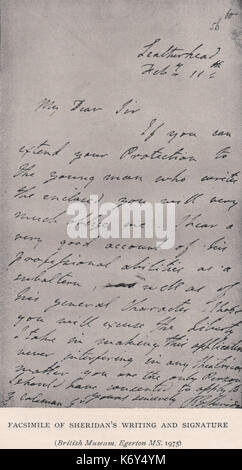 Leatherhead
Feby 11th
My Dear Sir
If you can
extend your Protection to
the young man who writes
the enclos'd you will very
much oblige me I hear a
very good account of his
professional abilities as a
subaltern, as well as of
his general character. I hope
you will excuse the liberty
I take in making this application
never interfering in any theatrical
matter you are the only Person
I should have consented to
G. Colman Yours sincerely R B Sheridan
FACSIMILE OF SHERIDAN'S WRITING AND SIGNATURE
(British Museum, Egerton MS. 1975)
alamy stock photo